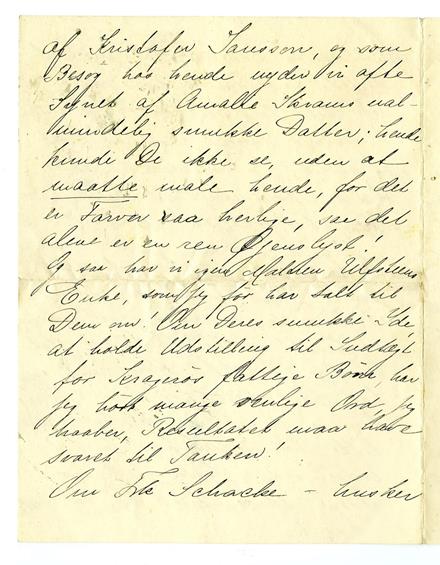 af Kristofer Janson, og som
Besøg hos hende nyder vi ofte
Synet af Amalie Skrams ual-
mindelig smukke Datter; hende
kunde De ikke se, uden at
maatte male hende, for det
er Farver saa herlige, saa det
alene er en ren Øjenslyst!
Og saa har vi igen Ulfstens
Enke, som jeg før har talt til
Dem om. Om Deres smukke Ide,
at holde Udstilling til Indtægt
for Kragerøs fattige Børn, har
jeg hørt mange venlige Ord, jeg
haaber, Resultatet maa have
svaret til Tanken!
Om Frk Schacke – husker